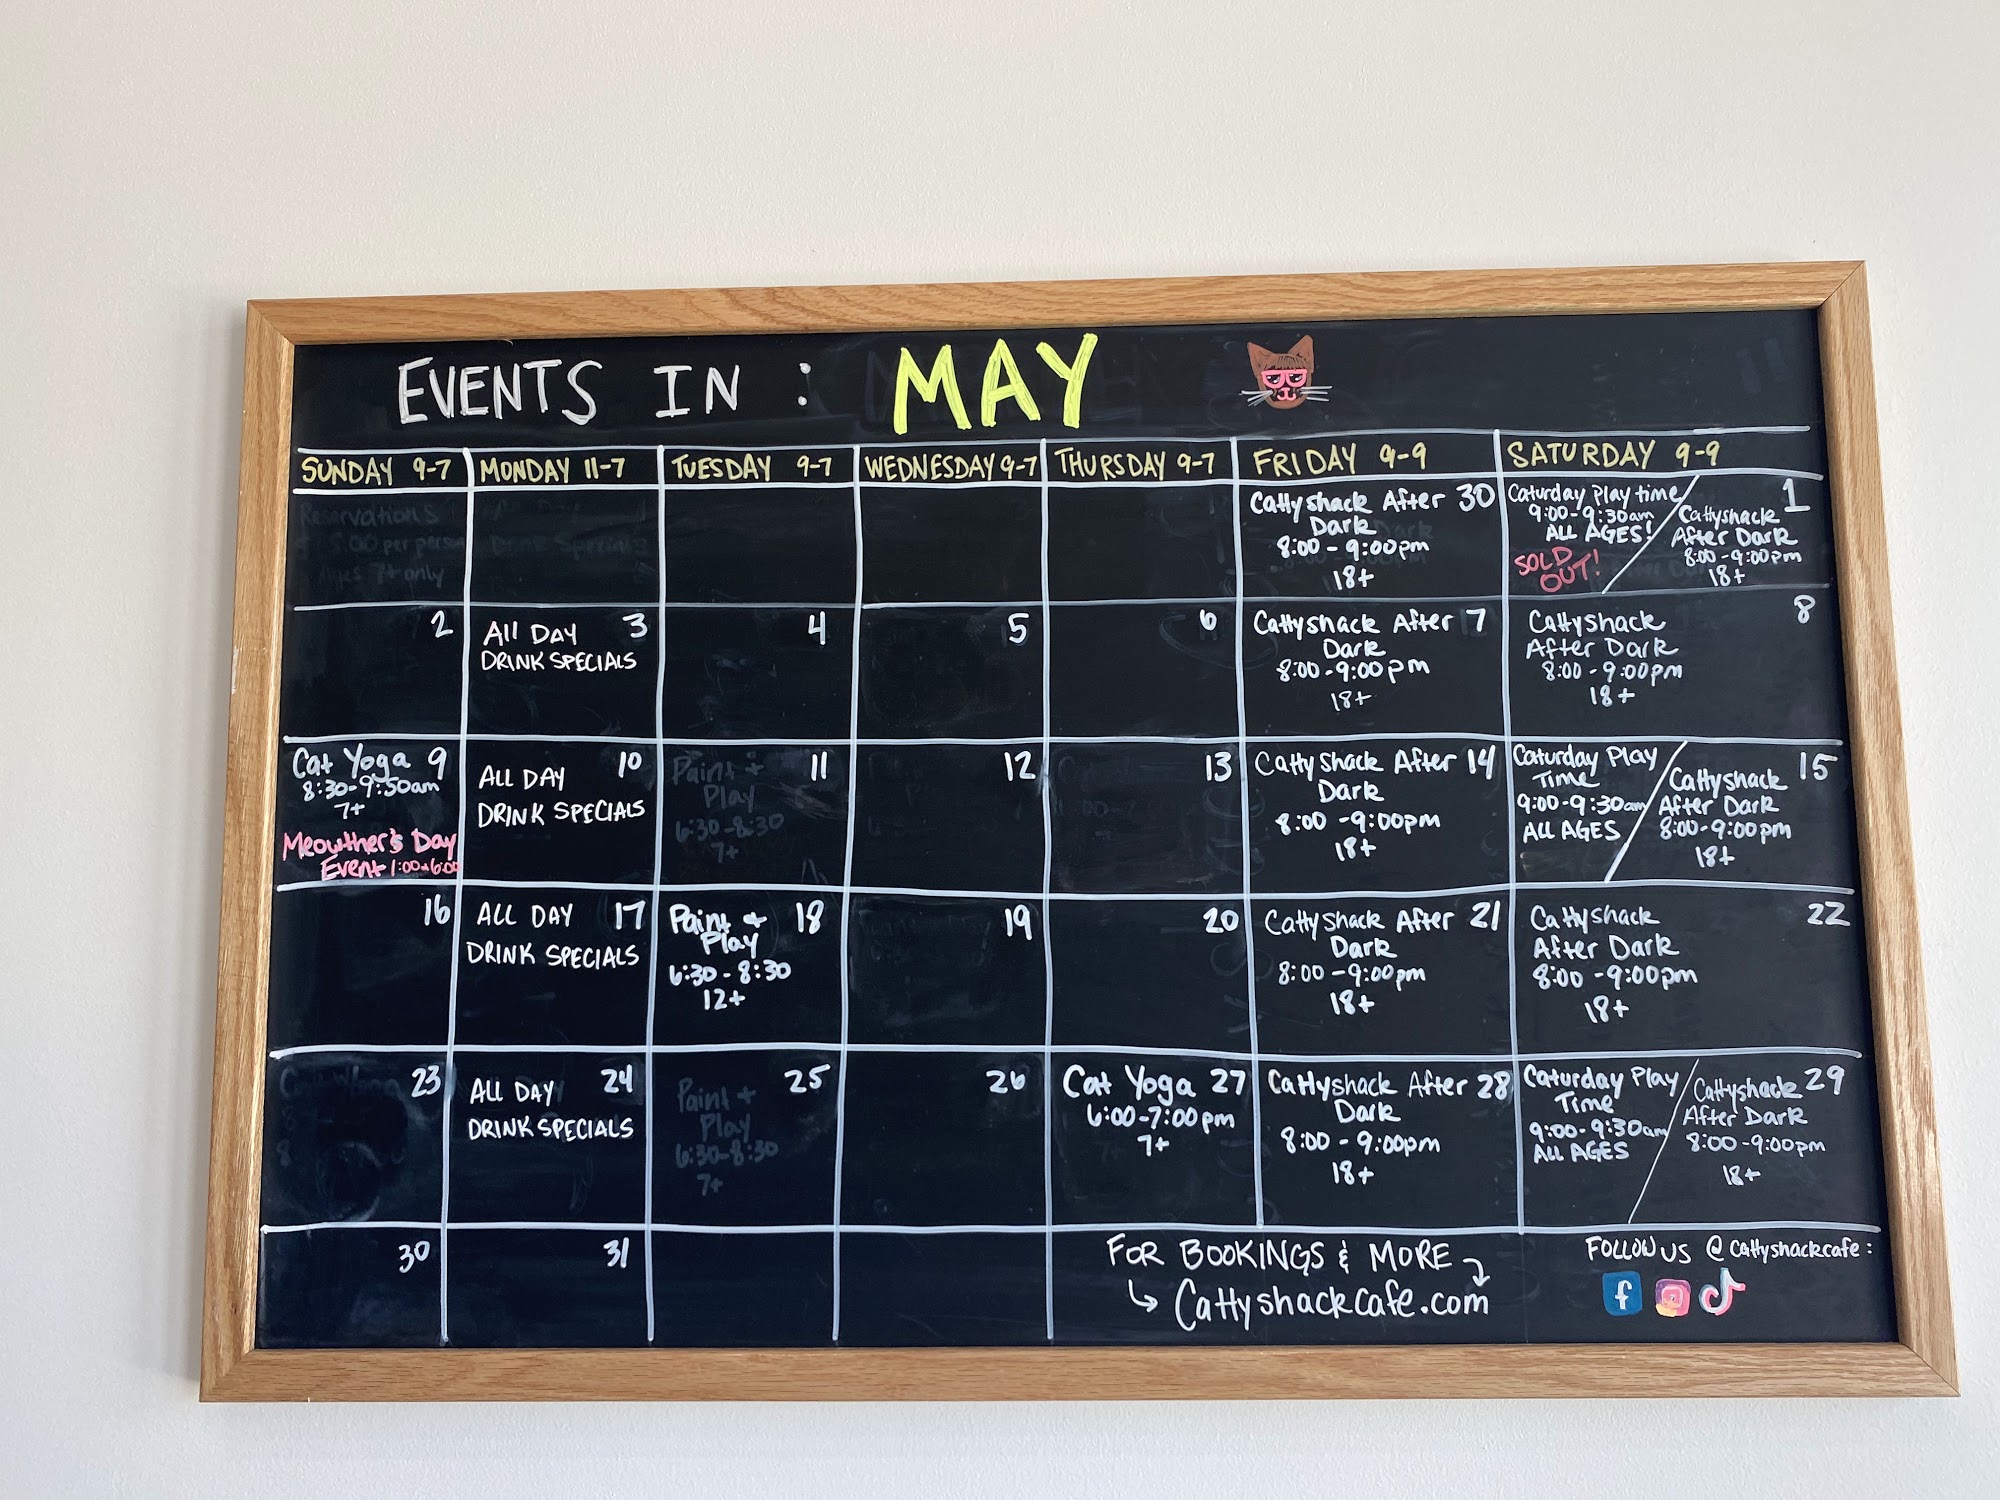 EVENTS IN : MAY
SUNDAY 9-7
MONDAY 11-7
TUESDAY 9-7
WEDNESDAY 9-7
THURSDAY 9-7
FRIDAY 9-9
SATURDAY 9-9
Reservations
per person
Ages 7+ only
Drink Specials
Cattyshack After 30
Dark
8:00 - 9:00pm
18+
Caturday Play time
9:00-9:30am
ALL AGES!
SOLD
OUT!
1
Cattyshack
After Dark
8:00-9:00pm
18+
2
All DAY 3
DRINK SPECIALS
4
5
6
Cattyshack After 7
Dark
8:00-9:00pm
18+
Cattyshack 8
After Dark
8:00-9:00pm
18+
Cat Yoga 9
8:30-9:50am
7+
Meowther's Day
Event 1:00-6:00
ALL DAY 10
DRINK SPECIALS
Paint + 11
Play
6:30-8:30
7+
12
13
Cattyshack After 14
Dark
8:00-9:00pm
18+
Caturday Play
Time
9:00-9:30am
ALL AGES
15
Cattyshack
After Dark
8:00-9:00pm
18+
16
ALL DAY 17
DRINK SPECIALS
Paint + 18
Play
6:30-8:30
12+
19
20
Cattyshack After 21
Dark
8:00-9:00pm
18+
Cattyshack 22
After Dark
8:00-9:00pm
18+
23
ALL DAY 24
DRINK SPECIALS
Paint + 25
Play
6:30-8:30
7+
26
Cat Yoga 27
6:00-7:00pm
7+
Cattyshack After 28
Dark
8:00-9:00pm
18+
Caturday Play
Time
9:00-9:30am
ALL AGES
Cattyshack 29
After Dark
8:00-9:00pm
18+
30
31
FOR BOOKINGS & MORE
Cattyshackcafe.com
FOLLOW US @cattyshackcafe: